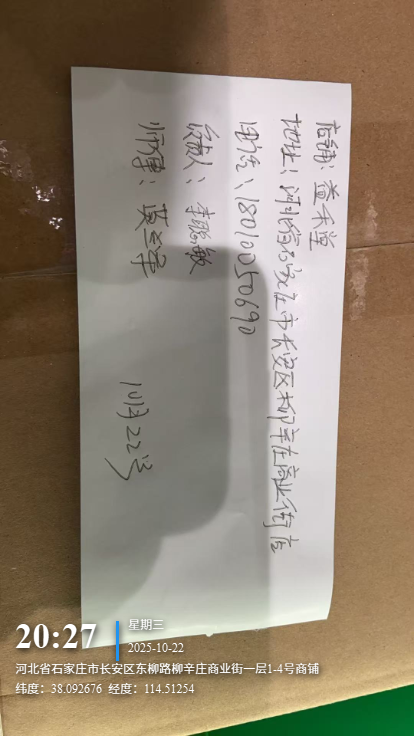 店铺：益禾堂
地址：河北省石家庄市长安区柳辛庄商业街店
电话：18010050690
收款人：李聪敏
师傅：黄三平
10月22号
20:27
星期三
2025-10-22
河北省石家庄市长安区东柳路柳辛庄商业街一层1-4号商铺
纬度：38.092676 经度：114.51254